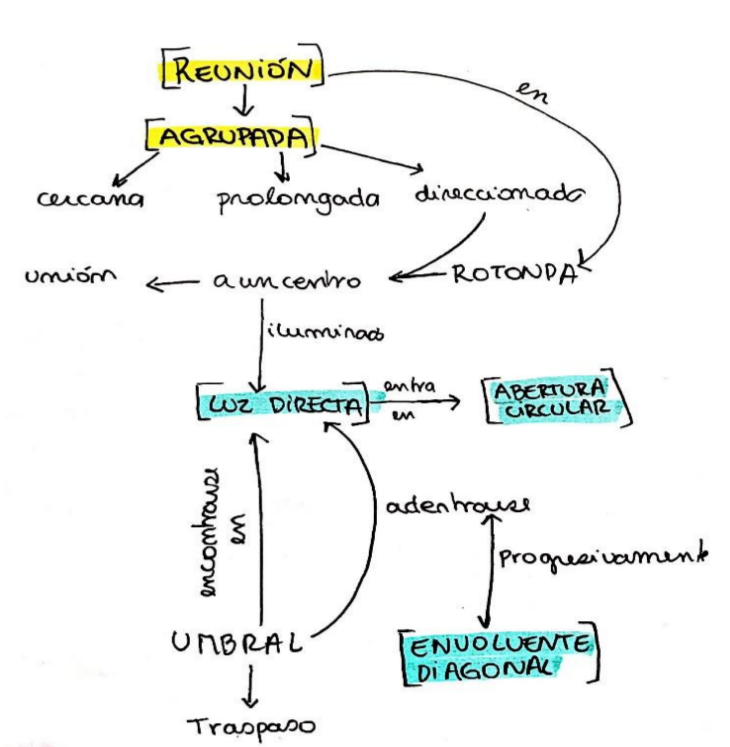 [REUNIÓN]
en
[AGRUPADA]
cercana prolongada direccionada
unión a un centro ROTONDA
iluminado
[LUZ DIRECTA] entra en [ABERTURA CIRCULAR]
encontrarse en
adentrarse
Progresivamente
UMBRAL
[ENVOLVENTE
DIAGONAL]
Traspaso